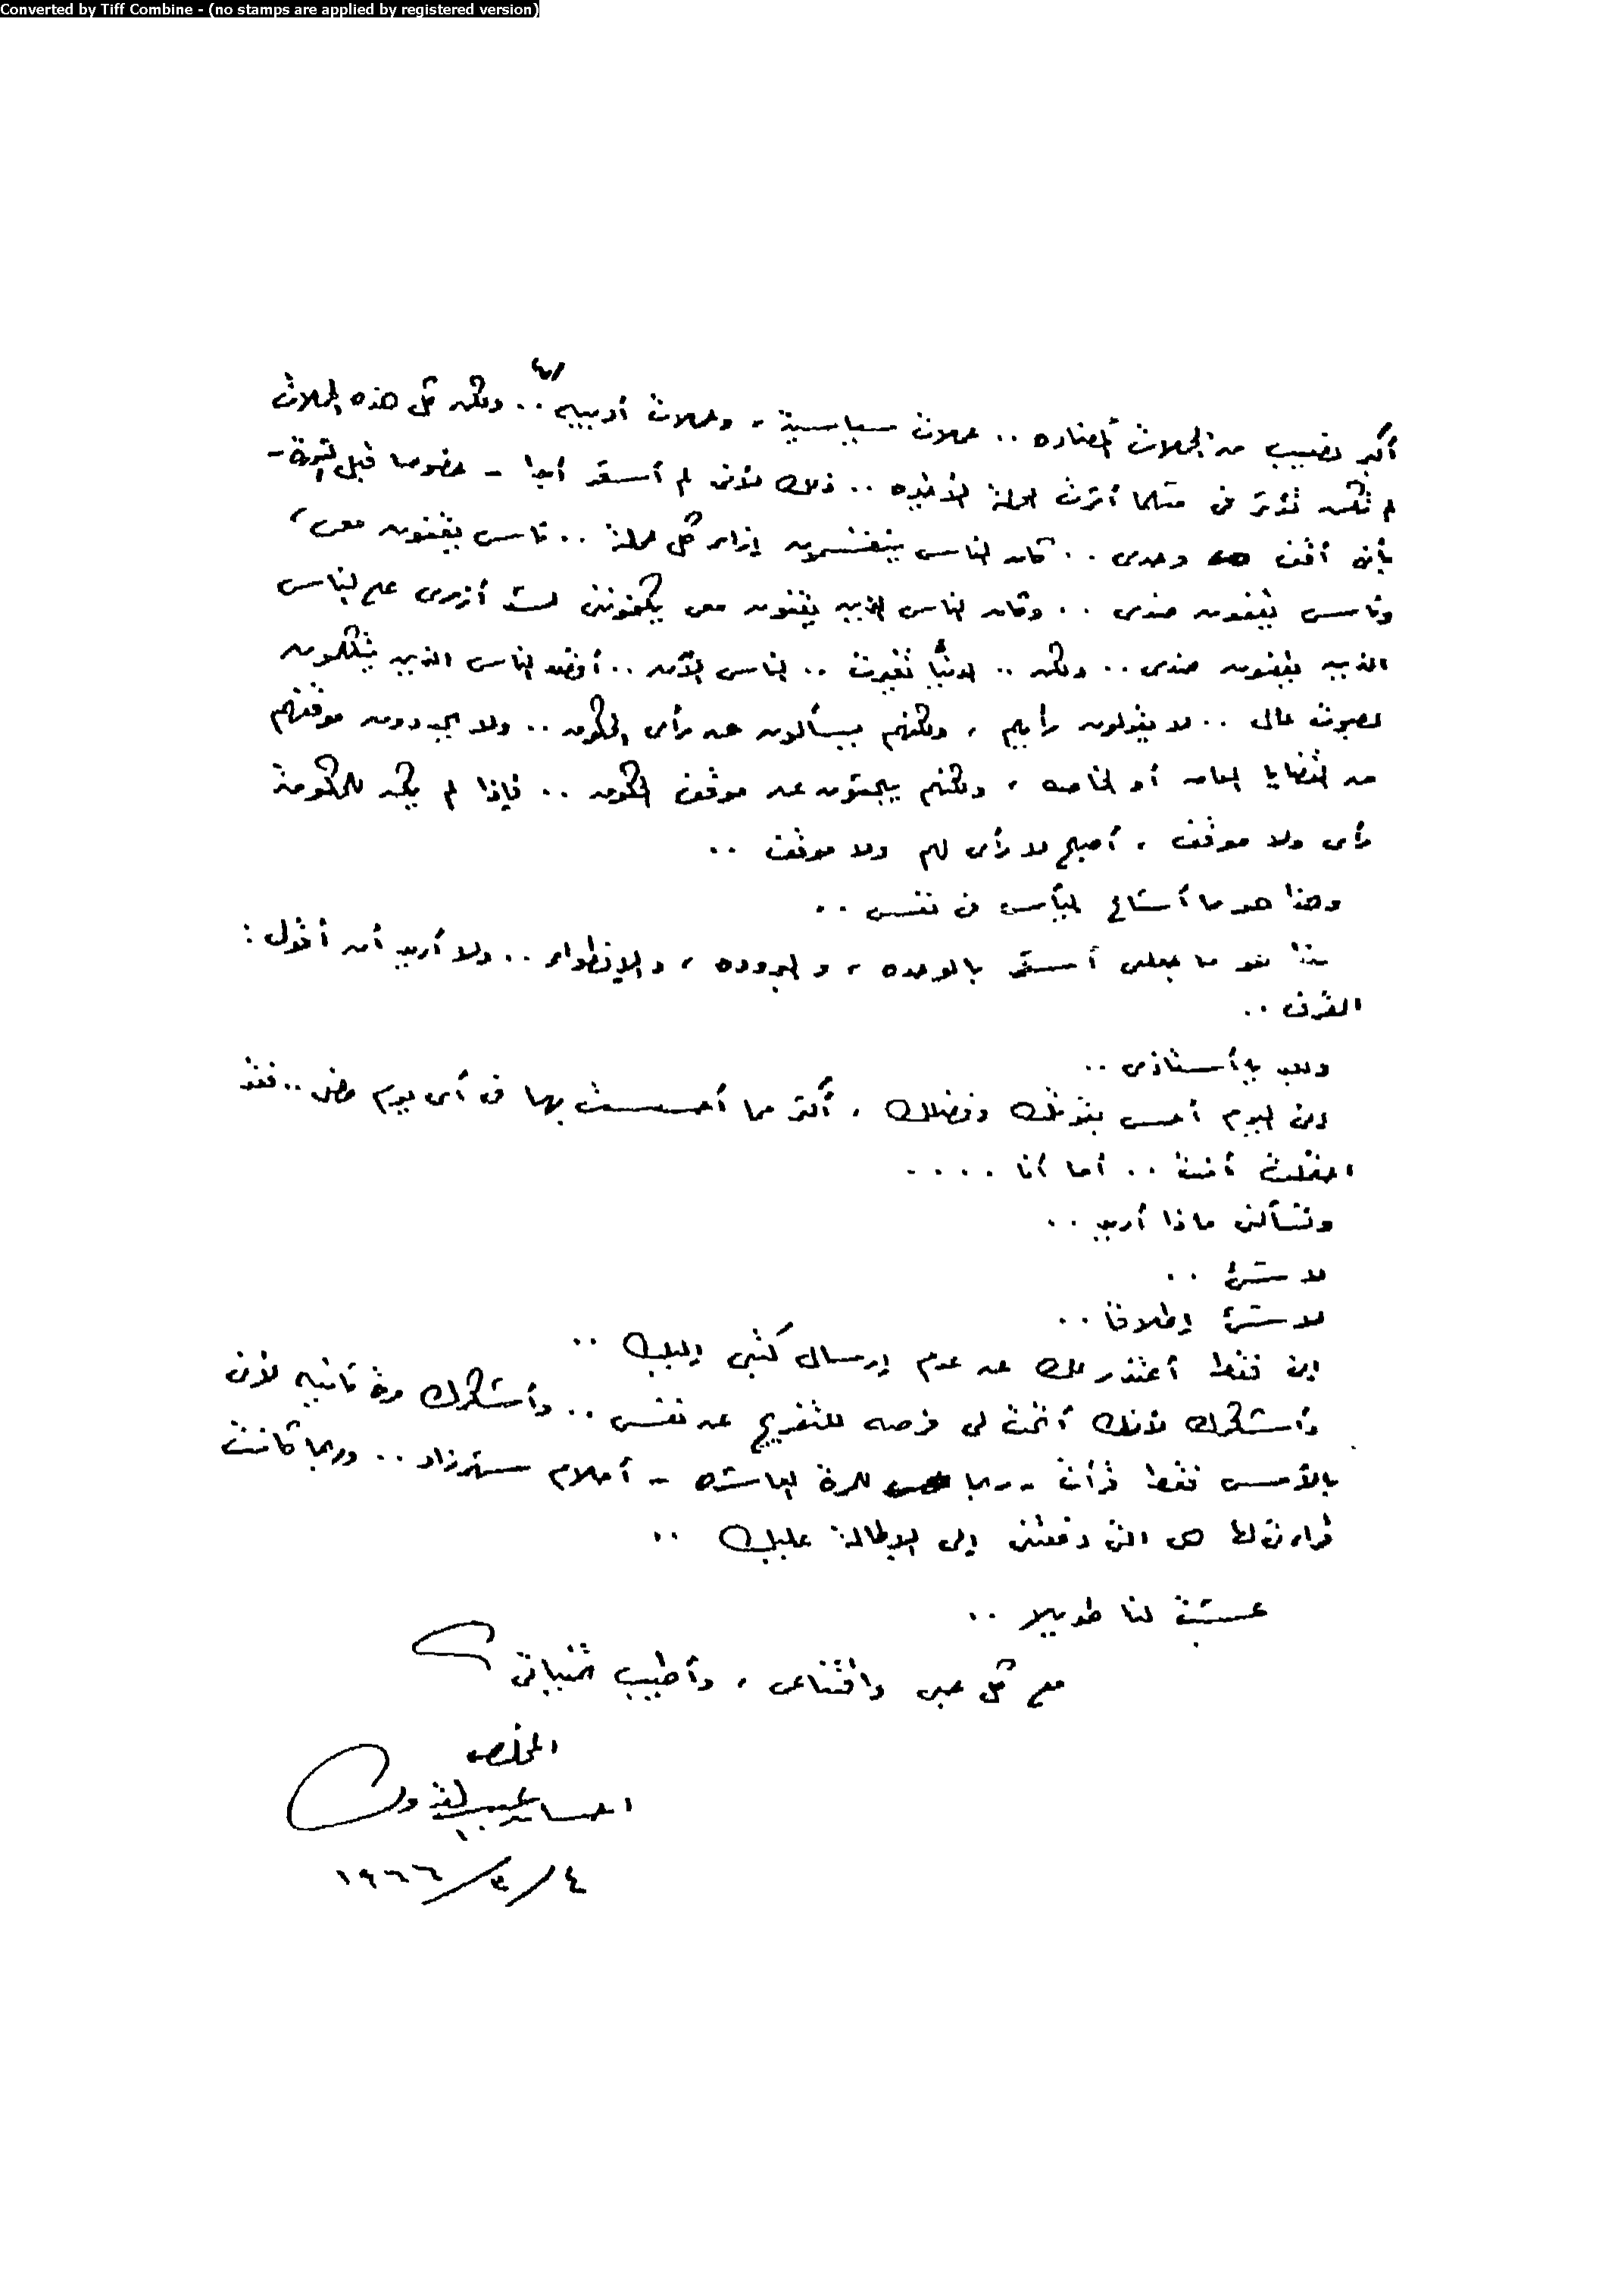 Converted by Tiff Combine - (no stamps are applied by registered version)
أكبر نصيب من الحملات المضاده .. حملات سياسية ، وحملات أدبيه .. ولكن كل هذه الحملات
لم تكن تؤثر فى مثلما أثرت الحملة الأخيره .. ذلك لأنى لم أشعر أبدا - خصوصا قبل الثورة -
بأنى أقف وحدى .. كان الناس ينقسمون إزاء كل حملة .. ناس يقفون معى ،
وناس يقفون ضدى .. وكان الناس الذين يقفون معى يكفوننى لست أزدرى على الناس
الذين يقفون ضدى .. ولكن .. الدنيا تغيرت .. الناس الآن .. أقصد الناس الذين يتكلمون
بصوت عال .. لا يقولون رأيهم ، ولكنهم يسألون عن رأى الحكومه .. ولا يحددون موقفهم
من القضايا العامه أو الخاصه ، ولكنهم يبحثون عن موقف الحكومه .. فإذا لم يكن للحكومة
رأى ولا موقف ، أصبح لا رأى لهم ولا موقف ..
وهذا هو ما أشاع اليأس فى نفسى ..
هذا هو ما جعلنى أشعر بالوحده ، والبروده ، والانطواء .. ولا أريد أن أقول :
القرف ..
وبعد يا أستاذى ..
إنى اليوم أحس بقوتك وفضلك ، أكثر مما أحسست بها فى أى يوم مضى .. فقد
احتملت أنت .. أما أنا ....
وتسألنى ماذا أريد ..
لا شئ ..
لا شئ إطلاقا ..
إنى فقط أعتذر لك عن عدم إرسال كتبى إليك ..
وأشكرك لأنك أتحت لى فرصه للتفريج عن نفسى .. وأشكرك مرة ثانيه لأنى
بالأمس فقط قرأت - ربما للمرة العاشره - أحلام شهرزاد .. وربما كانت
قراءتى لها هى التى دفعتنى إلى الإطالة عليك ..
عشت لنا طويلا ..
مع كل حبى واقتناعى ، وأطيب تمنياتى
المخلص
احسان عبد القدوس
٤/٣/١٩٦٦